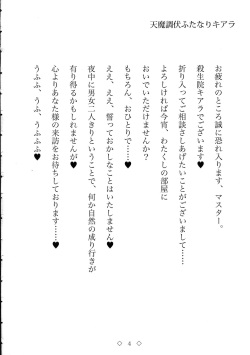 天魔調伏ふたなりキアラ
お疲れのところ誠に恐れ入ります、マスター。
殺生院キアラでございます♥
折り入ってご相談さしあげたいことがございまして……
よろしければ今宵、わたくしの部屋に
おいでいただけませんか？
もちろん、おひとりで……♥
ええ、ええ、誓っておかしなことはいたしません♥
夜中に男女二人きりということで、何か自然の成り行きが
有り得るかもしれませんが♥
心よりあなた様の来訪をお待ちしております……♥
うふふ、うふ、うふふふ♥
◇ 4 ◇